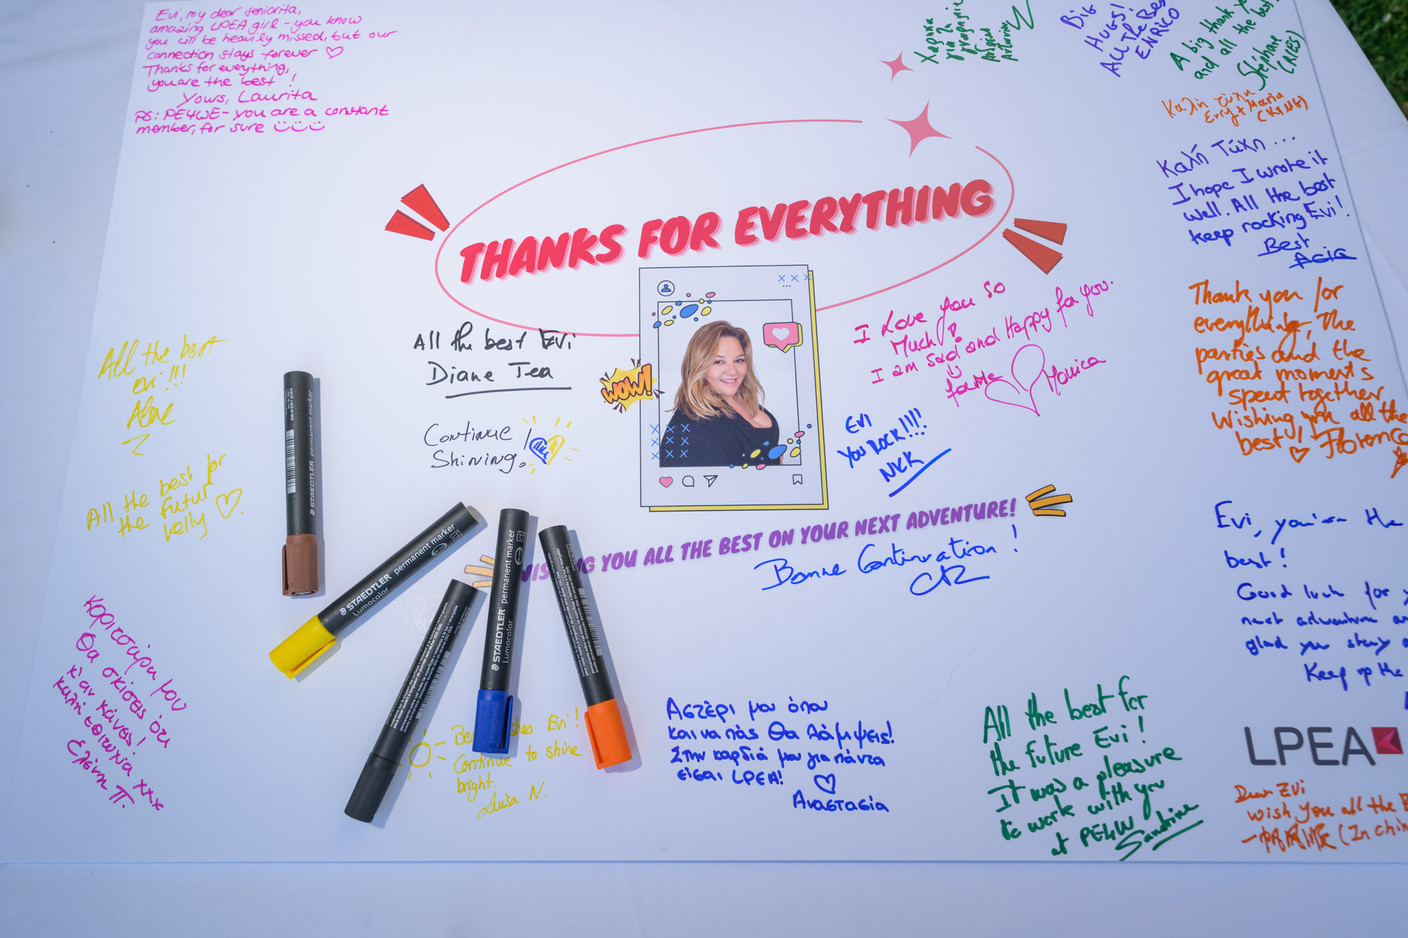 Evi, my dear seniorita,
amazing LPEA girl - you know
you will be heavily missed, but our
connection stays forever ♡
Thanks for everything,
you are the best !
Yours, Laurita
PS: PE4WE - you are a constant
member, for sure
Χαρηκα
για τη
γνωριμία
BIG
HUGS!
All The Best
ENRICO
A big thank you
and all the best!
Stéphane
Καλη τύχη
Erry + Maria
(KING)
Καλή Τύχη ...
I hope I wrote it
well. All the best
keep rocking Evi!
Best
Asia
THANKS FOR EVERYTHING
WOW!
All the best Evi
Diane Tea
Continue
Shining!
I Love you so
Much!
I am sad and Happy for you.
Monica
EVI
YOU ROCK!!!!
NICK
Thank you for
everything, the
parties and the
great moments
spent together
Wishing you all the
best! ♡
All the best
Evi !!!
All the best for
the futur
Kelly ♡
WISHING YOU ALL THE BEST ON YOUR NEXT ADVENTURE!
Bonne Continuation !
Evi, you're the
best!
Good luck for
next adventure
glad you stay
Keep up the
Κοριτσάρα μου
Θα σκίσεις ότι
κι αν κάνεις!
Καλή επιτυχία xxx
Ελένη Π.
STAEDTLER permanent marker
Lumocolor
STAEDTLER permanent marker
Lumocolor
STAEDTLER permanent marker
Evi!
Continue to shine
bright.
Luisa N.
Αστέρι μου όπου
και να πάς Θα λάμψεις!
Στην καρδιά μου για πάντα
είσαι LPEA!
♡
Αναστασία
All the best for
the future Evi!
It was a pleasure
to work with you
at PE4W
Sandrine
LPEA
Dear EVI
wish you all the
(In chin